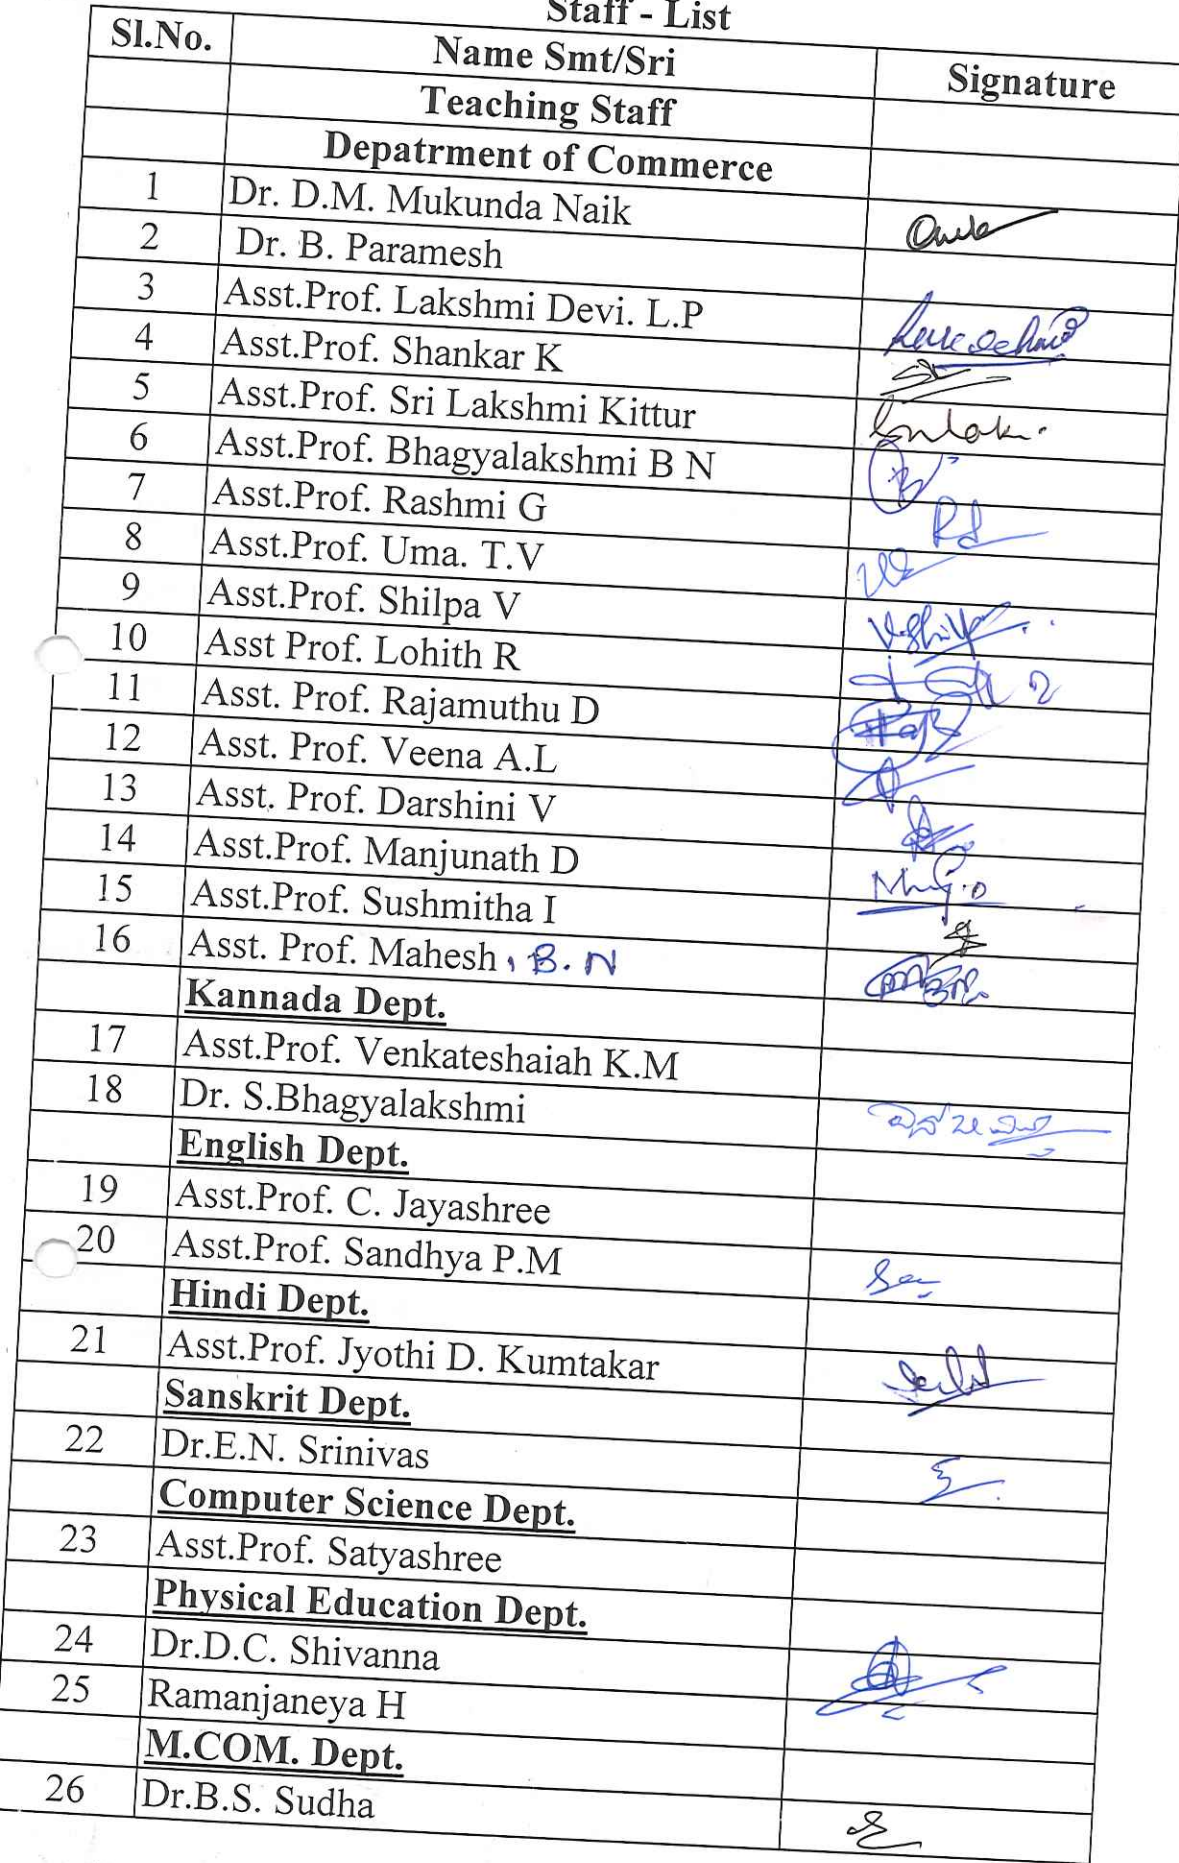 Staff - List
Sl.No. Name Smt/Sri Signature
Teaching Staff
Depatrment of Commerce
1 Dr. D.M. Mukunda Naik
2 Dr. B. Paramesh
3 Asst.Prof. Lakshmi Devi. L.P
4 Asst.Prof. Shankar K
5 Asst.Prof. Sri Lakshmi Kittur
6 Asst.Prof. Bhagyalakshmi B N
7 Asst.Prof. Rashmi G
8 Asst.Prof. Uma. T.V
9 Asst.Prof. Shilpa V
10 Asst Prof. Lohith R
11 Asst. Prof. Rajamuthu D
12 Asst. Prof. Veena A.L
13 Asst. Prof. Darshini V
14 Asst.Prof. Manjunath D
15 Asst.Prof. Sushmitha I
16 Asst. Prof. Mahesh , B. N
Kannada Dept.
17 Asst.Prof. Venkateshaiah K.M
18 Dr. S.Bhagyalakshmi
English Dept.
19 Asst.Prof. C. Jayashree
20 Asst.Prof. Sandhya P.M
Hindi Dept.
21 Asst.Prof. Jyothi D. Kumtakar
Sanskrit Dept.
22 Dr.E.N. Srinivas
Computer Science Dept.
23 Asst.Prof. Satyashree
Physical Education Dept.
24 Dr.D.C. Shivanna
25 Ramanjaneya H
M.COM. Dept.
26 Dr.B.S. Sudha